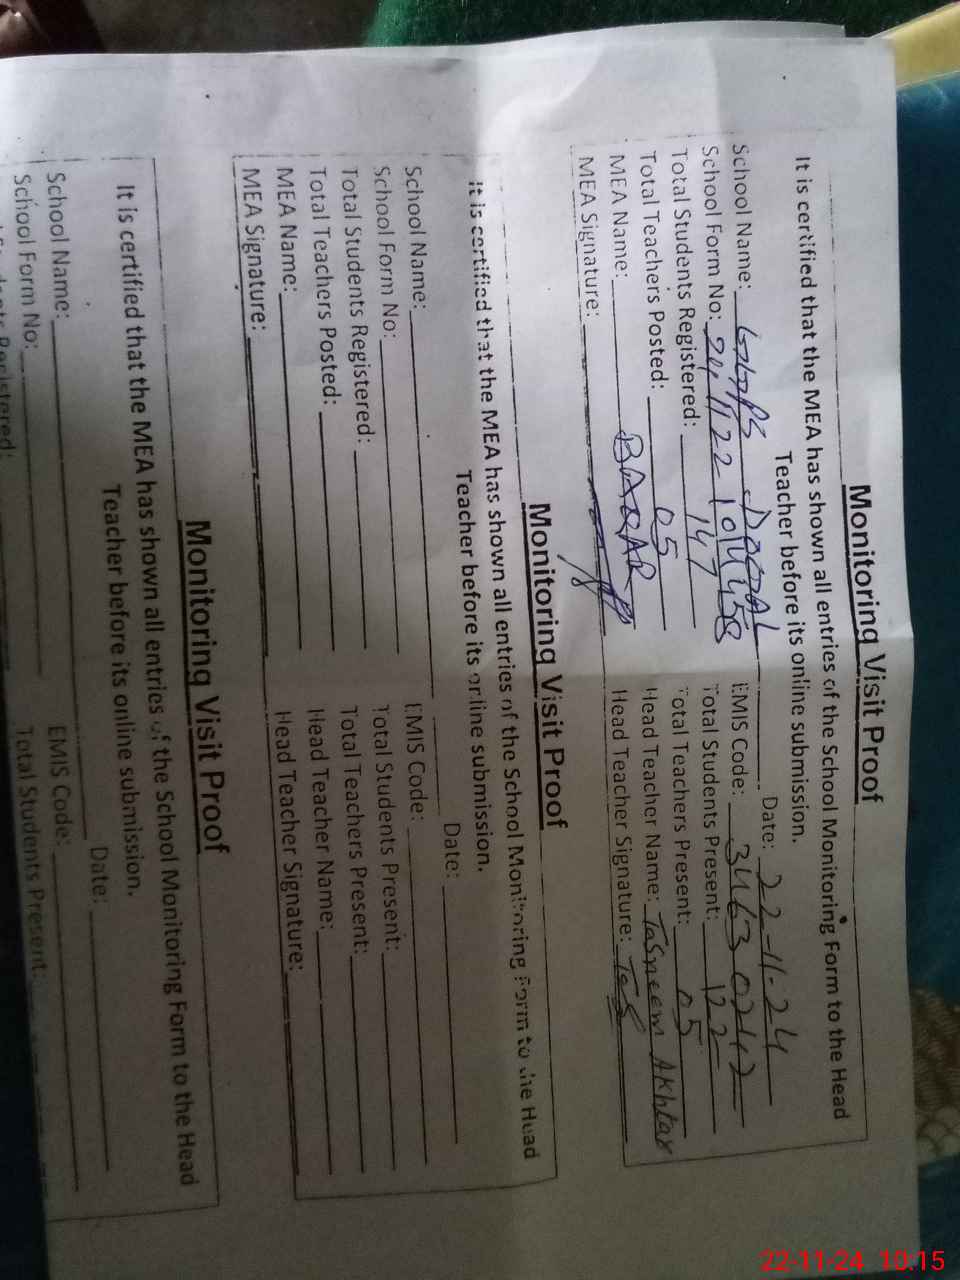 Monitoring Visit Proof
It is certified that the MEA has shown all entries of the School Monitoring Form to the Head
Teacher before its online submission.
Date: 22-11-24
School Name: DOOAL EMIS Code: 34630242
School Form No: Total Students Present: 122
Total Students Registered: 147 Total Teachers Present: 05
Total Teachers Posted: 05 Head Teacher Name: Tasneem Akhtar
MEA Name: BAQAR Head Teacher Signature: Tas
MEA Signature:
Monitoring Visit Proof
It is certified that the MEA has shown all entries of the School Monitoring Form to the Head
Teacher before its online submission.
Date:
School Name: EMIS Code:
School Form No: Total Students Present:
Total Students Registered: Total Teachers Present:
Total Teachers Posted: Head Teacher Name:
MEA Name: Head Teacher Signature:
MEA Signature:
Monitoring Visit Proof
It is certified that the MEA has shown all entries of the School Monitoring Form to the Head
Teacher before its online submission.
Date:
School Name: EMIS Code:
School Form No: Total Students Present:
Registered:
22-11-24 10:15